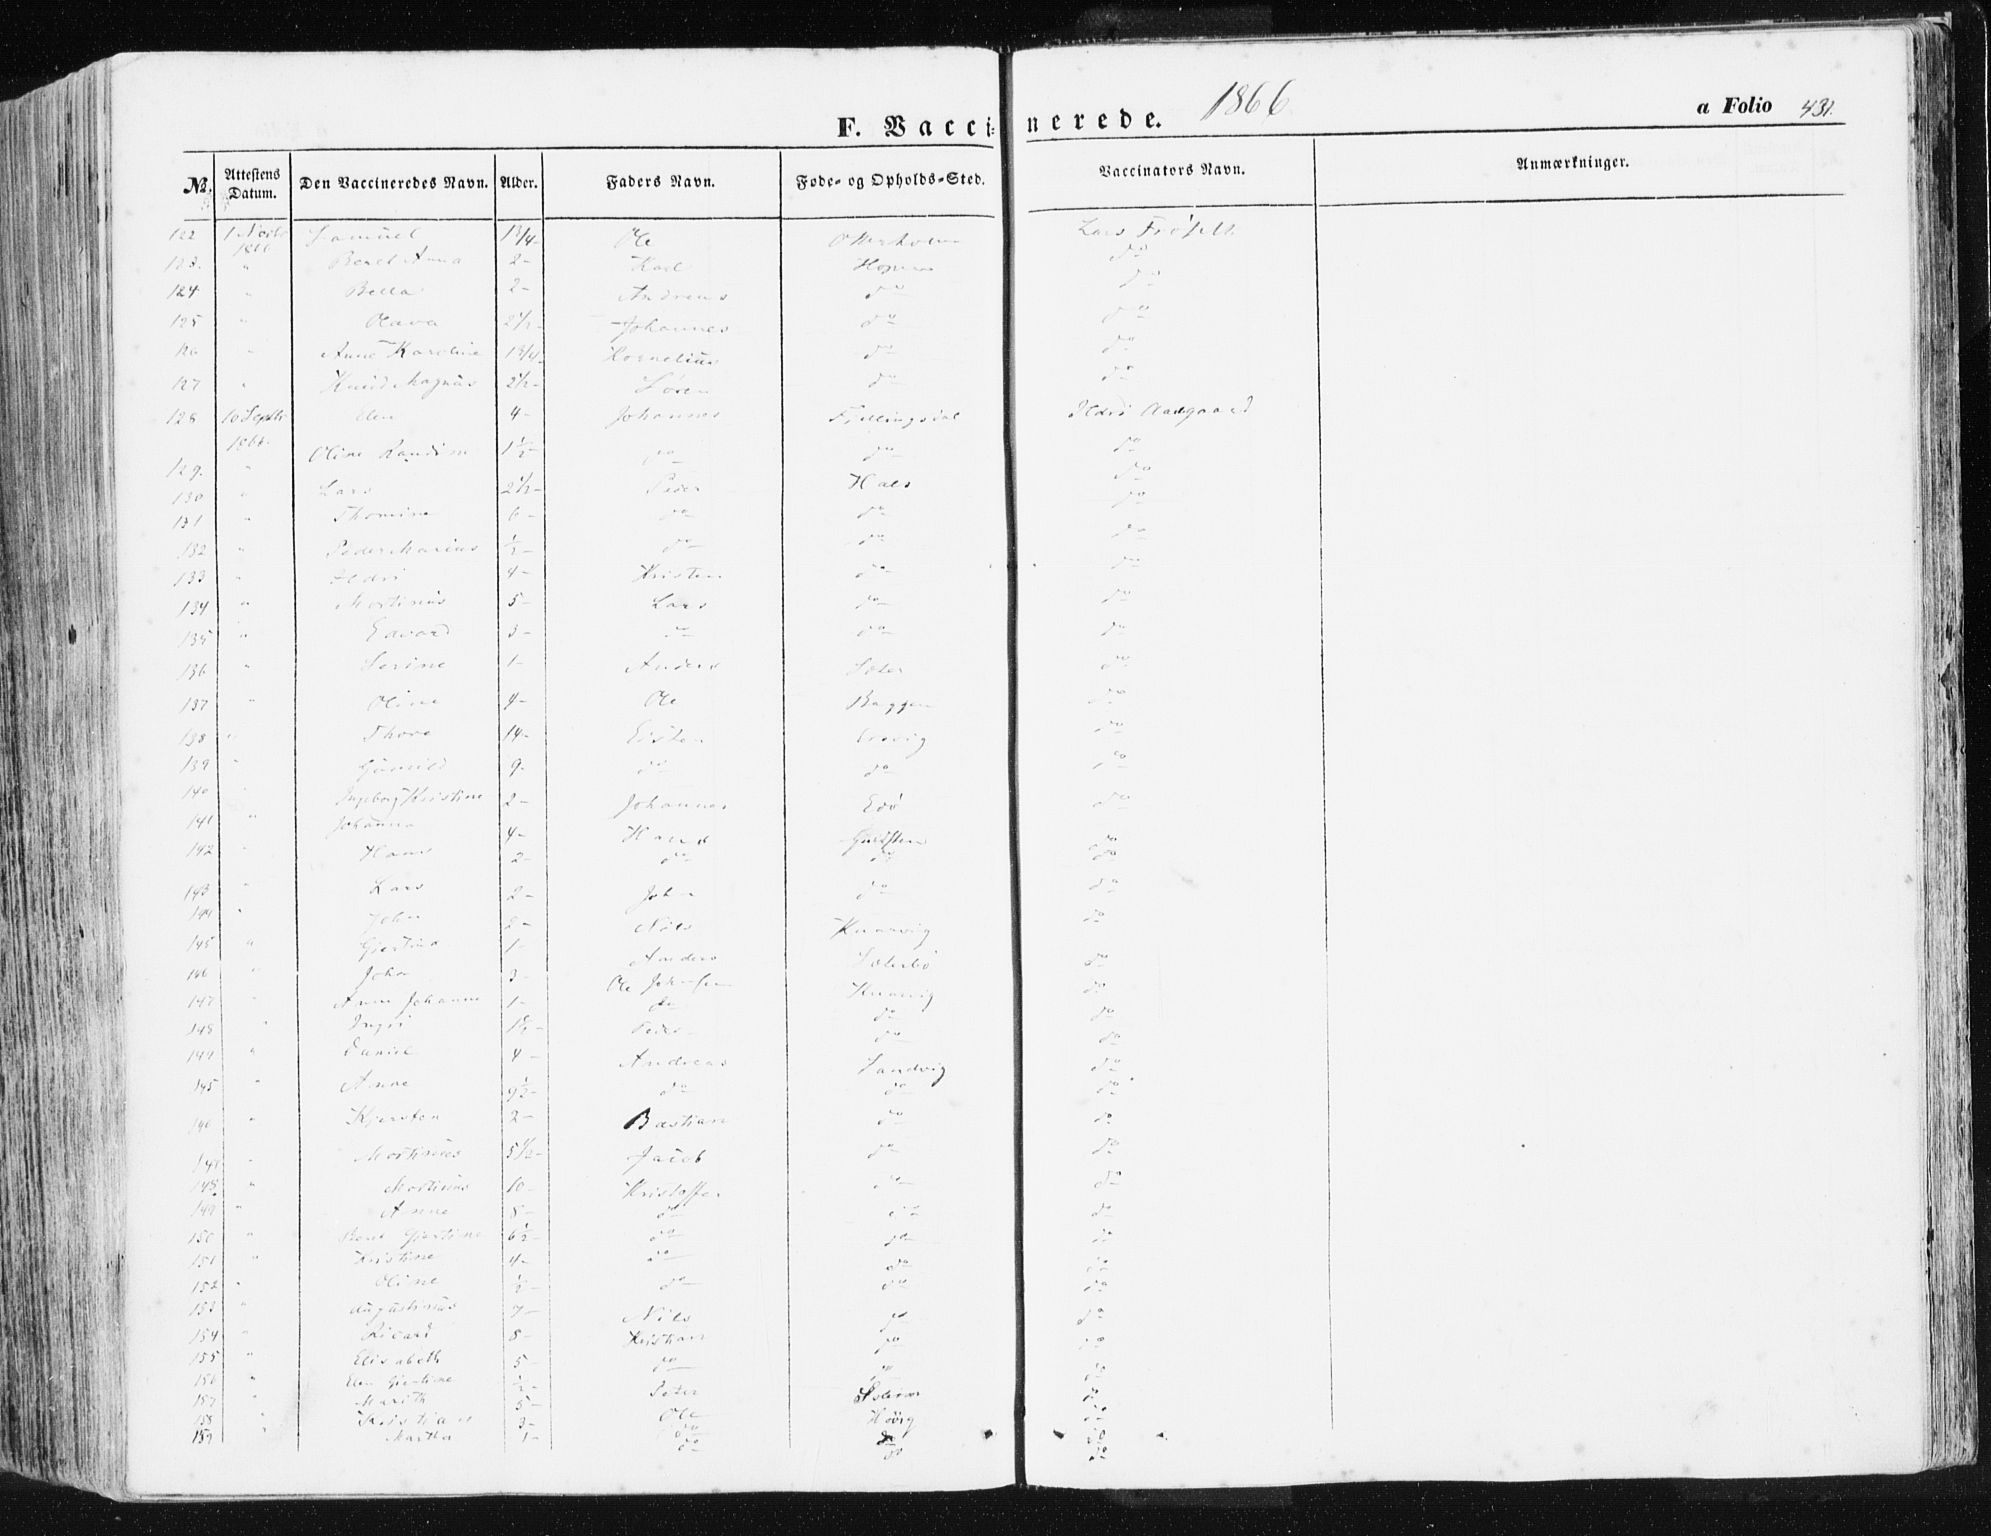 F. Vaccinerede. 1866 a Folio 431.
No. Attestens Datum. Den Vaccineredes Navn. Alder. Faders Navn. Føde- og Opholds-Sted. Vaccinators Navn. Anmærkninger.
122 1 1866 Samuel 1 3/4 - Ole Lars
123. " Beret Anna 2 - Karl do
124 " Bella 2 - Andreas do do
125 " Olava 2 1/2 - Johannes do do
126 " Anne Karoline 1 3/4 - Kornelius do do
127 " Knud Magnus 2 1/2 - Sören do do
128 10 Septbr 1866. Elen 4 - Johannes Fjellingsdal Ildri Aadgaard
129. " Oline 1 1/2 - do do do
130 " Lars 2 1/2 - Peder Hals do
131 " Thomine 6 - do do do
132 " Peder Marius 1/2 - do do do
133 " Ildri 4 - Kristen do do
134 " Mortinus 5 - Lars do do
135 " Edvard 3 - do do do
136 " Serine 1 - Anders Sæter do
137 " Oline 4 - Ole Baggen do
138 " Thore 14 - Eisten do
139 " Gunild 9 - do do do
140 " Ingeborg Kristine 2 - Johannes Edö do
141 " Johanna 4 - Hans do
142 " Hans 2 - do do do
143 " Lars 2 - John do do
144 " John 2 - Nils Knarvig do
145 " Gjertina 1 - Anders Sæterbö do
146 " John 3 - Ole Johnsen Knarvig do
147 " Anne Johanna 1 - do do do
148 " Ingri 1 1/2 - Peder do do
149 " Daniel 4 - Andreas Sandvig do
145 " Anne 9 1/2 - do do do
146 " Kjersten 2 - Bastian do do
147 " Mortinus 5 1/2 - Jacob do do
148 " Mortinus 10 - Kristoffer do do
149 " Anne 8 - do do do
150 " Beret Gjertine 6 1/2 - do do do
151 " Kristine 4 - do do do
152 " Oline 1/2 - do do do
153 " Augustinus 7 - Nils do do
154 " Ricard 8 - Kristian do do
155 " Elisabeth 5 - do do do
156 " Elen Gjertine 1/2 - Peter do
157 " Marith 5 - Ole do
158 " Kristian 3 - do do do
159 Martha 1 - do do do